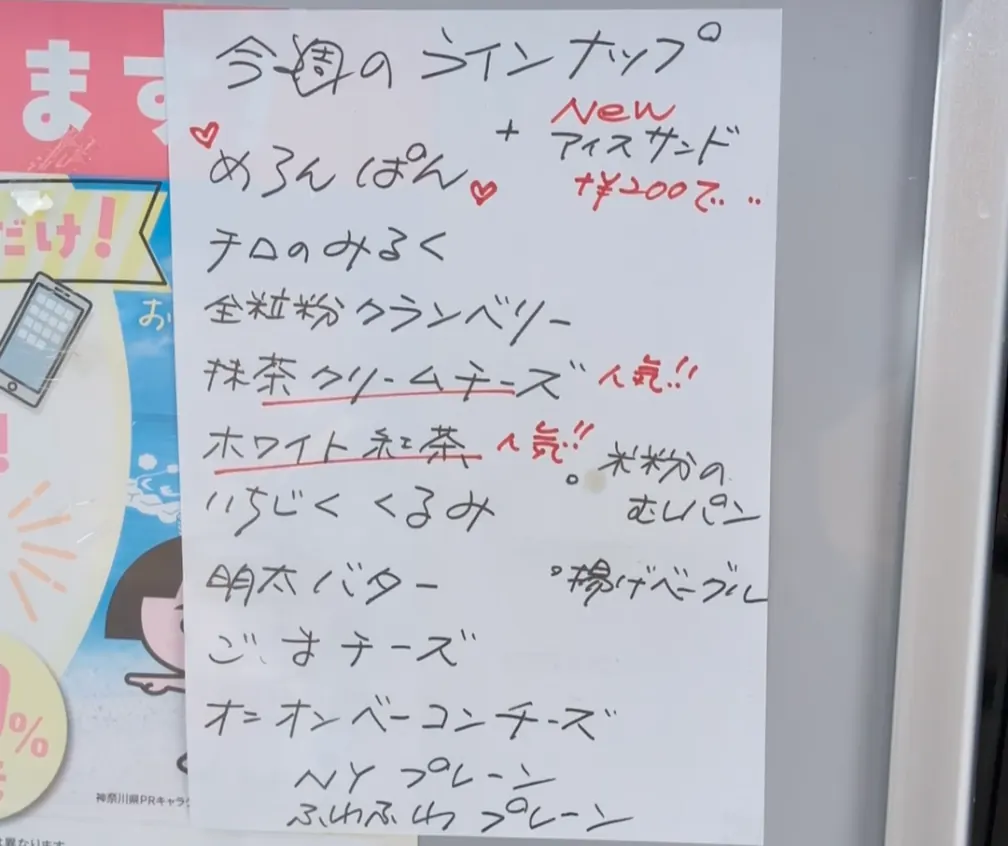 ます
だけ!
お
今週のラインナップ
+ New
アイスサンド
+¥200で...
めろんぱん
チロのみるく
全粒粉クランベリー
抹茶クリームチーズ 人気!!
ホワイト紅茶 人気!!
。米粉の
むしパン
いちじくくるみ
明太バター
。揚げベーグル
ごまチーズ
オニオンベーコンチーズ
NYプレーン
ふわふわプレーン
%
神奈川県PRキャラク
は異なります